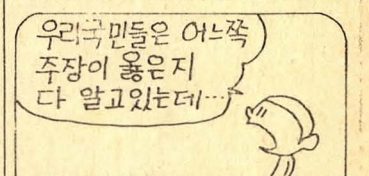 우리국민들은 어느쪽
주장이 옳은지
다 알고있는데…